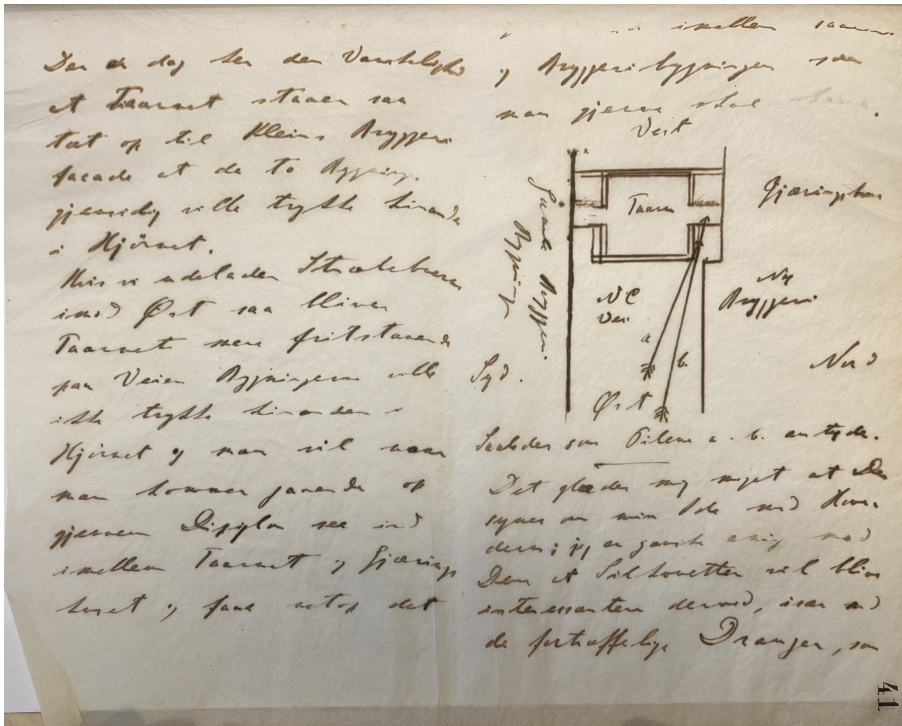 Der er dag her den Vanskelighed
at Taarnet staaer saa
tæt op til Kleins Bryggeri
facade at de to Bygning.
gjensidig ville trykke hinanden
i Hjörnet.
Hvis vi udelader
imod Øst saa bliver
Taarnet mere fritstaaende
paa Veien Bygningerne ville
ikke trykke hinanden i
Hjörnet og man vil naar
man kommer gaaende op
gjennem see ind
imellem Taarnet og Gjærings
huset og faae netop det
imellem
og Bryggeribygningen som
man gjerne skal
Vest
Taarn
Gjæringshus
Gamle Bryggeri
Bygning
Ny
Bryggeri
Vei
a
b.
Syd.
Nord
Øst
Saaledes som Pilene a. b. antyde.
Det glæder mig meget at De
synes om min Ide med
derni jeg er ganske enig med
Dem at Silhouetten vil blive
interessantere derved, især ved
de fortræffelige Drager, som
41